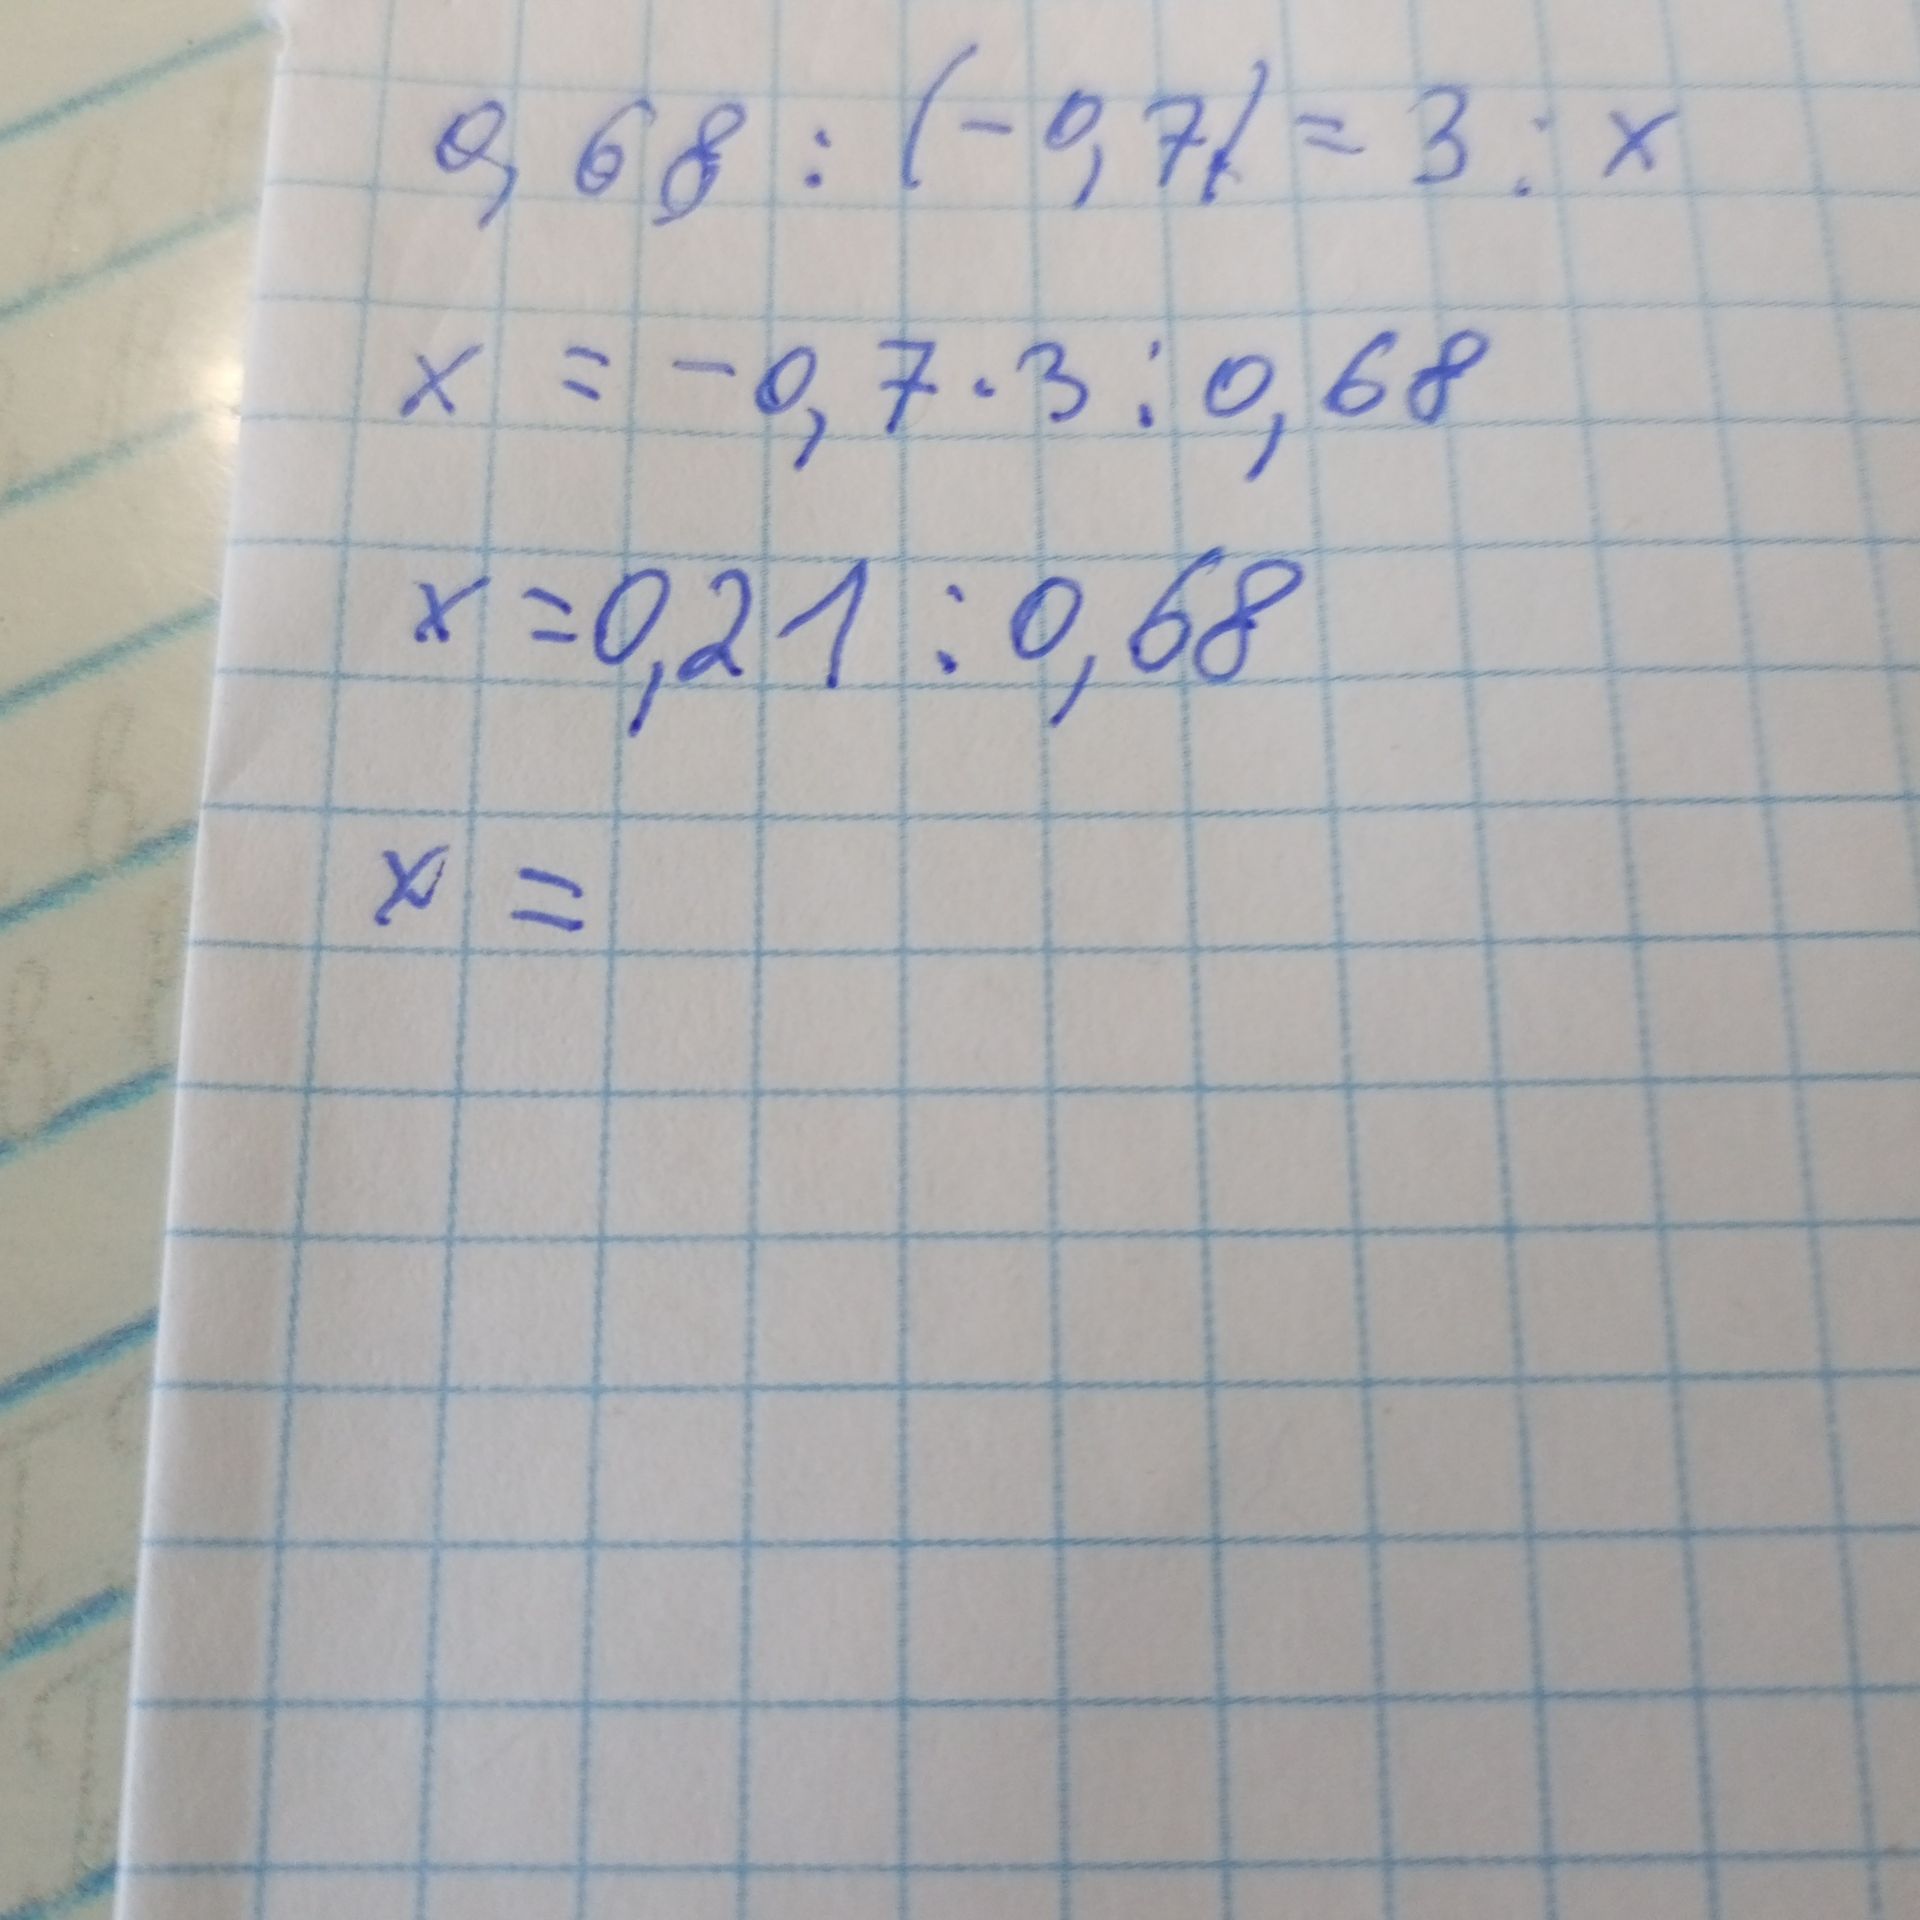 0,68 : (-0,7) = 3 : x
x = -0,7 · 3 : 0,68
x = 0,21 : 0,68
x =